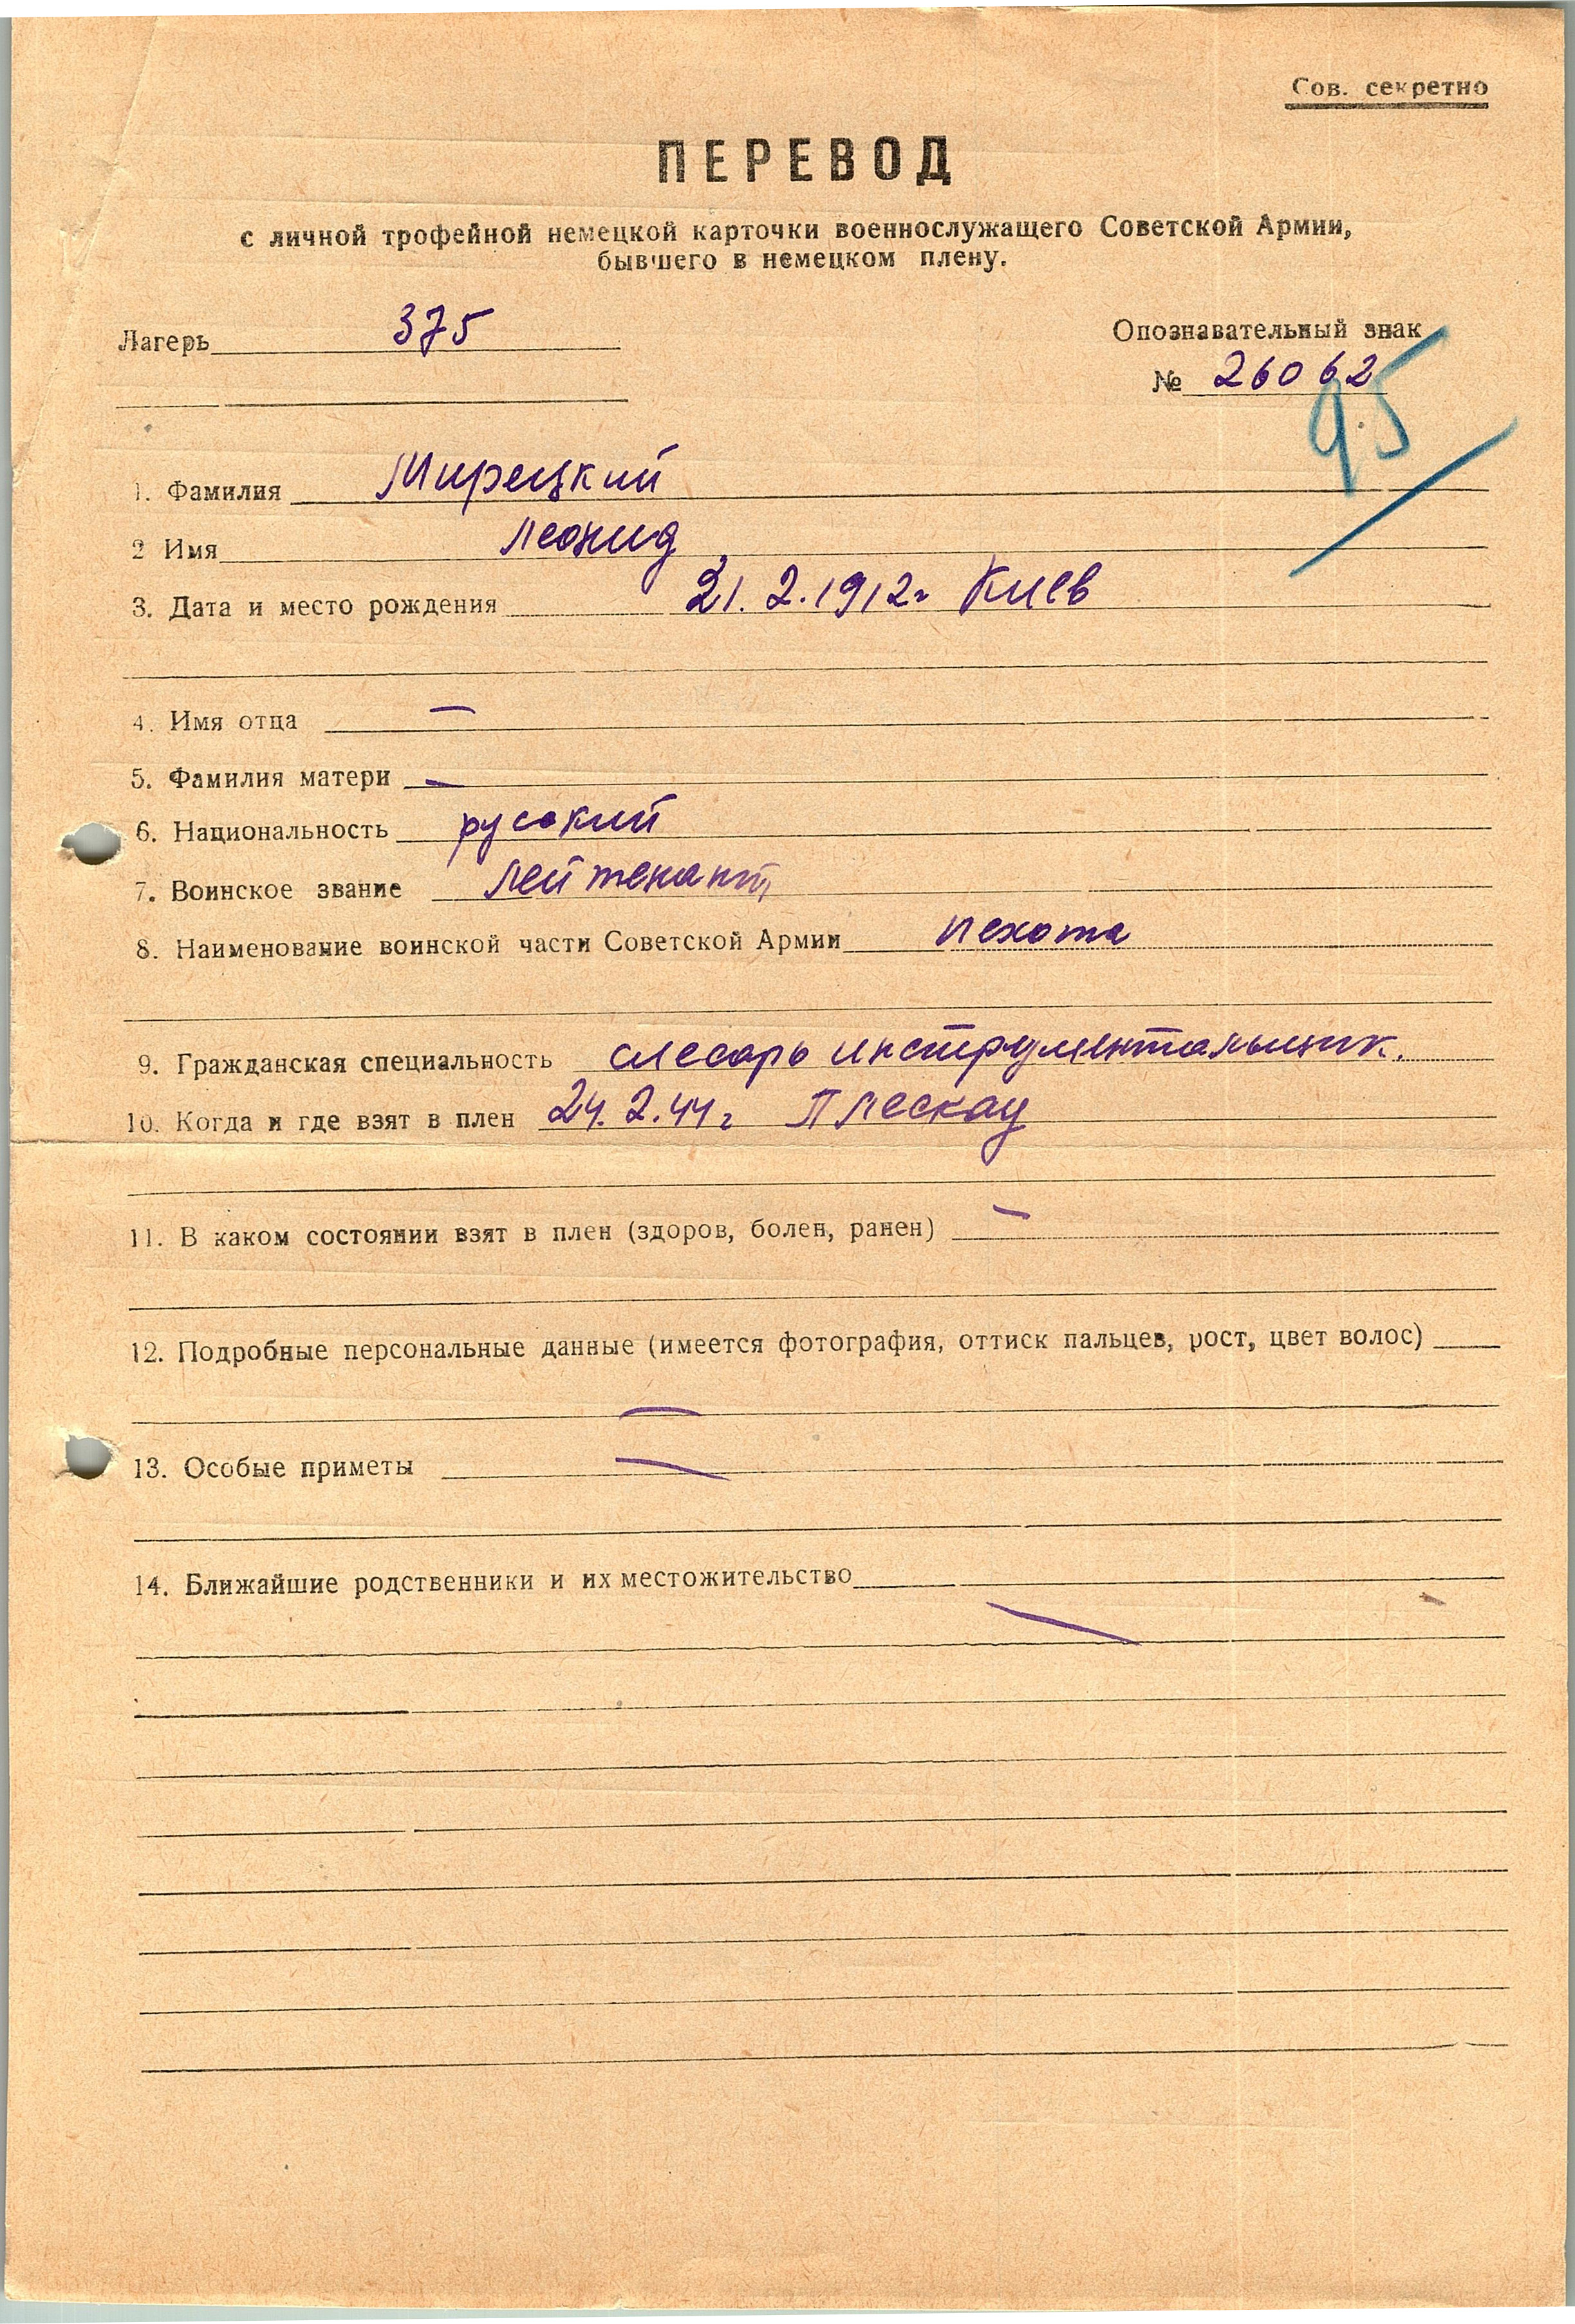 Сов. секретно
ПЕРЕВОД
с личной трофейной немецкой карточки военнослужащего Советской Армии,
бывшего в немецком плену.
Лагерь 375
Опознавательный знак
№ 26062
95
1. Фамилия Мирецкий
2 Имя Леонид
3. Дата и место рождения 21.2.1912г Киев
4. Имя отца —
5. Фамилия матери —
6. Национальность русский
7. Воинское звание лейтенант
8. Наименование воинской части Советской Армии пехота
9. Гражданская специальность слесарь инструментальщик.
10. Когда и где взят в плен 24.2.44г Плескау
11. В каком состоянии взят в плен (здоров, болен, ранен) —
12. Подробные персональные данные (имеется фотография, оттиск пальцев, рост, цвет волос)
—
13. Особые приметы —
14. Ближайшие родственники и их местожительство
—